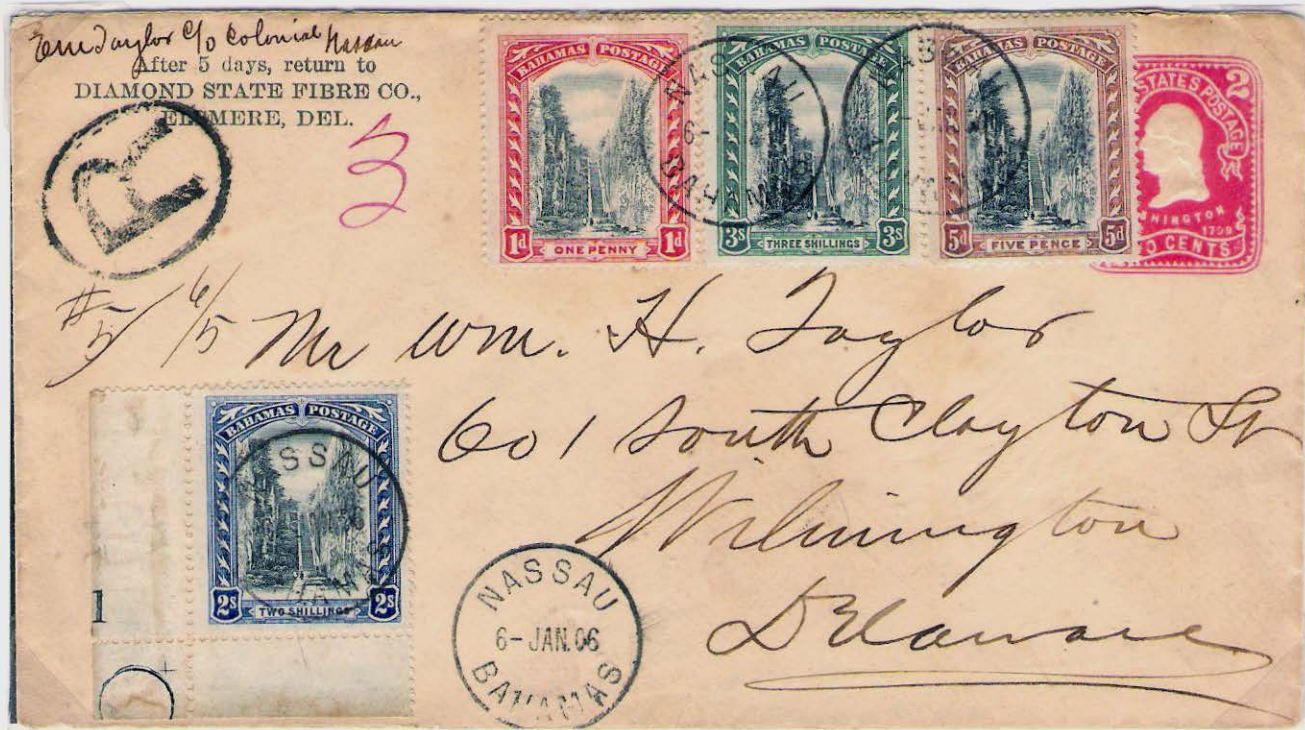 Em Taylor c/o Colonial Nassau
After 5 days, return to
DIAMOND STATE FIBRE CO.,
ELSMERE, DEL.
R
3
BAHAMAS POSTAGE
1d ONE PENNY 1d
BAHAMAS POSTAGE
3s THREE SHILLINGS 3s
BAHAMAS POSTAGE
5d FIVE PENCE 5d
STATES POSTAGE 2
1799
CENTS
NASSAU
6-
BAHAMAS
#5/ 6/5 Mr Wm. H. Taylor
601 South Clayton St
Wilmington
Delaware
BAHAMAS POSTAGE
2s TWO SHILLINGS 2s
1
NASSAU
BAHAMAS
NASSAU
6-JAN.06
BAHAMAS